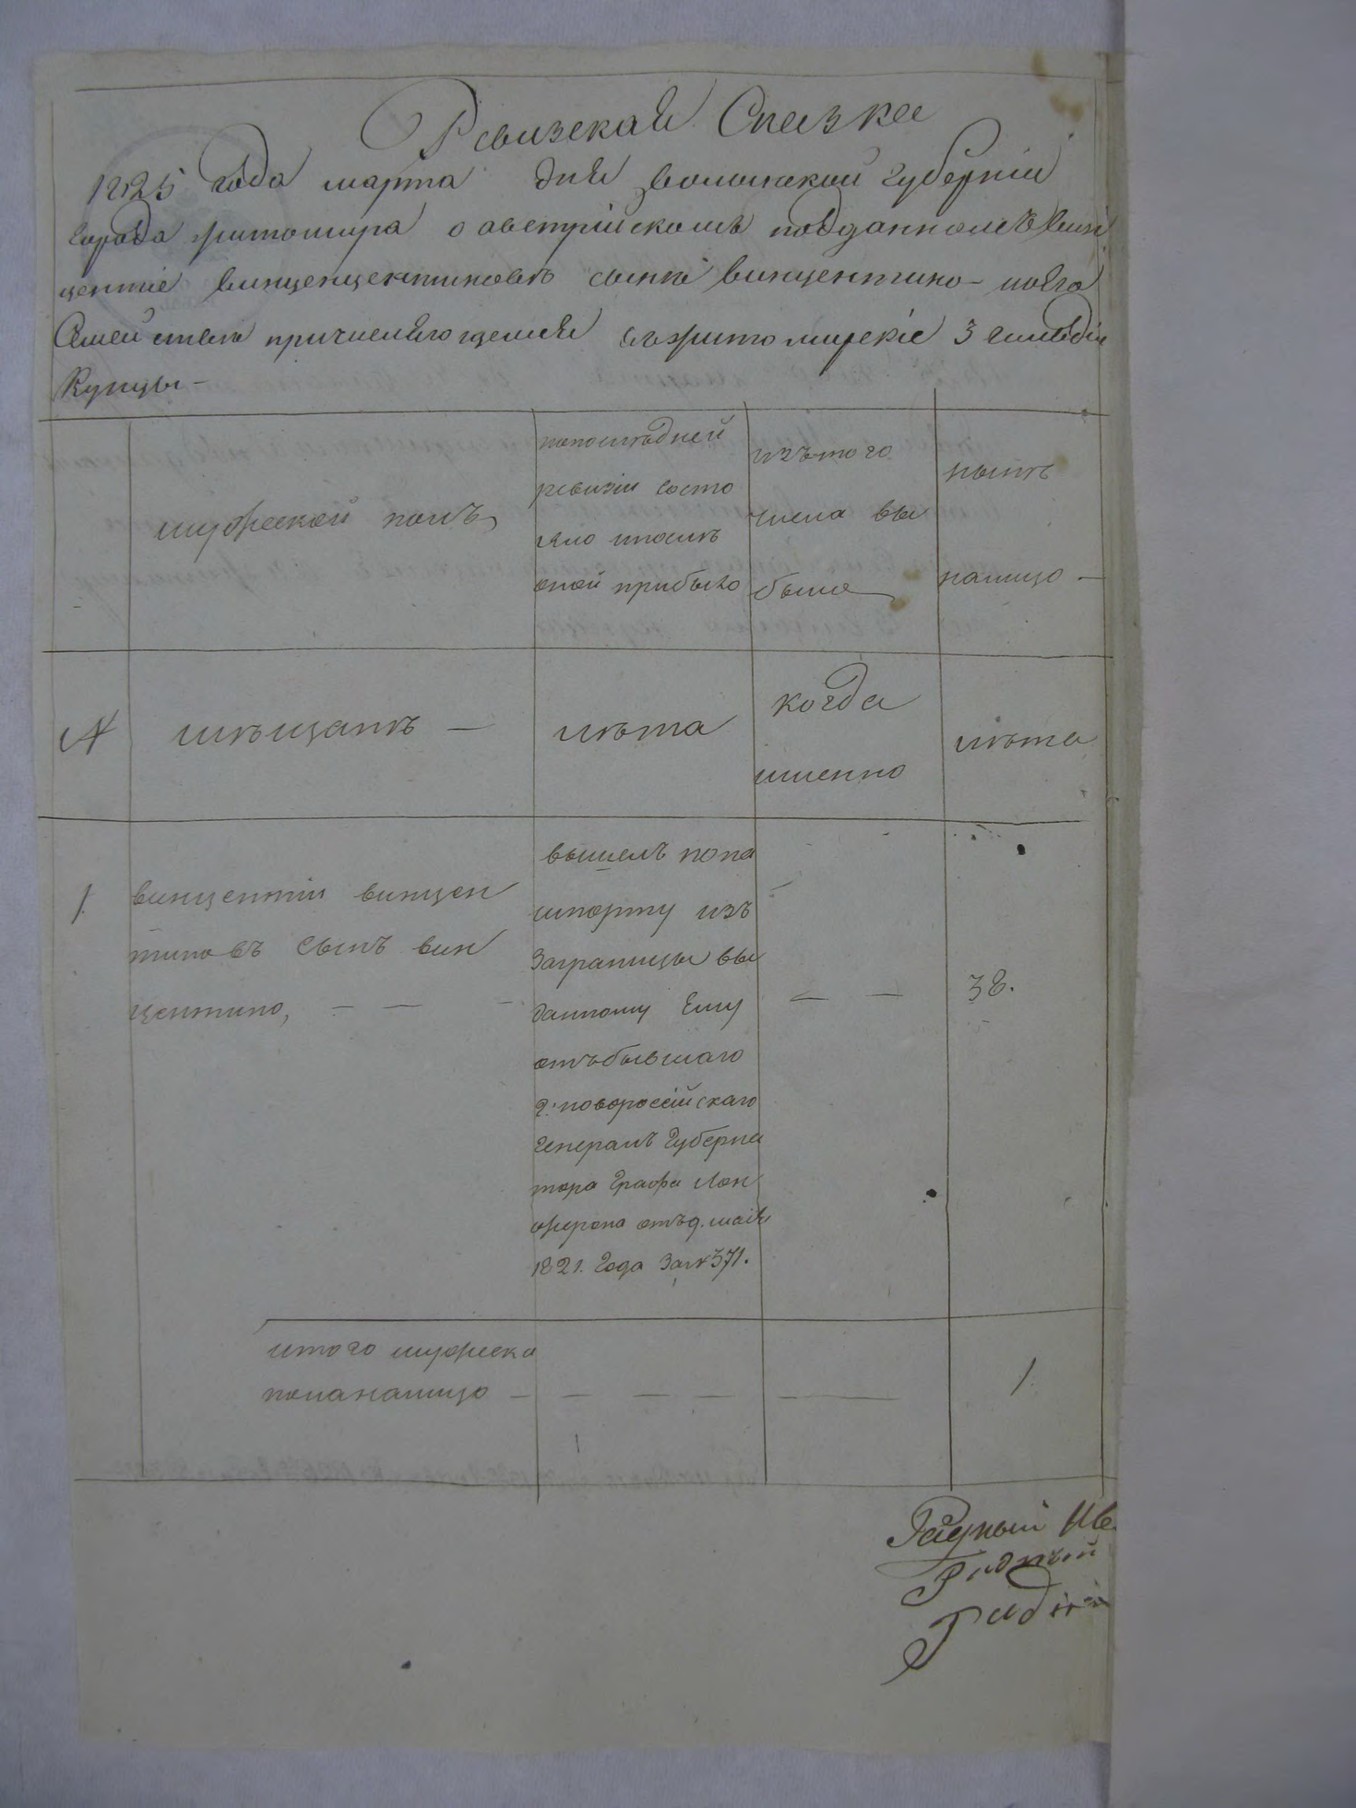 Ревизская Сказка
1825 года марта дня волынской губернии
города житомира о австрійскомъ подданномъ Вин
центіе винценцентиновѣ сынѣ винцентино - и его
Семействѣ причисляющемся въ житомирскіе 3 гильдіи
Купцы -
мужеской полъ,
попослѣдней
ревизіи состо
яло и послѣ
оной прибыло
изътого
числа вы
было
нынѣ
налицо -
№
мѣщанѣ -
лѣта
когда
именно
лѣта
1.
винцентіи винцен
тиновъ сынъ вин
центино, - - -
вышелъ попа
шпорту изъ
заграницы вы
данному Ему
отъбывшаго
Г: новороссійскаго
генералъ Губерна
тора Графа Лан
жерона отъ 9. маія
1821. Года за № 371.
- -
38.
итого мужеска
пола налицо - - - - -
1
Ратный